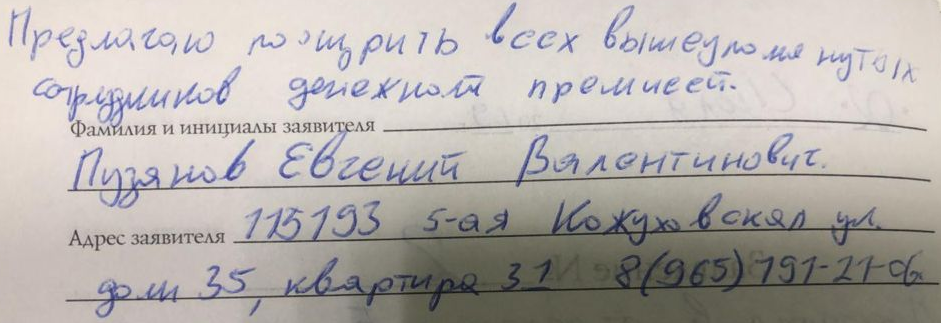 Предлагаю поощрить всех вышеупомянутых
сотрудников денежной премией.
Фамилия и инициалы заявителя
Пузянов Евгений Валентинович.
Адрес заявителя 115193 5-ая Кожуховская ул.
дом 35, квартира 31 8(965)191-21-06